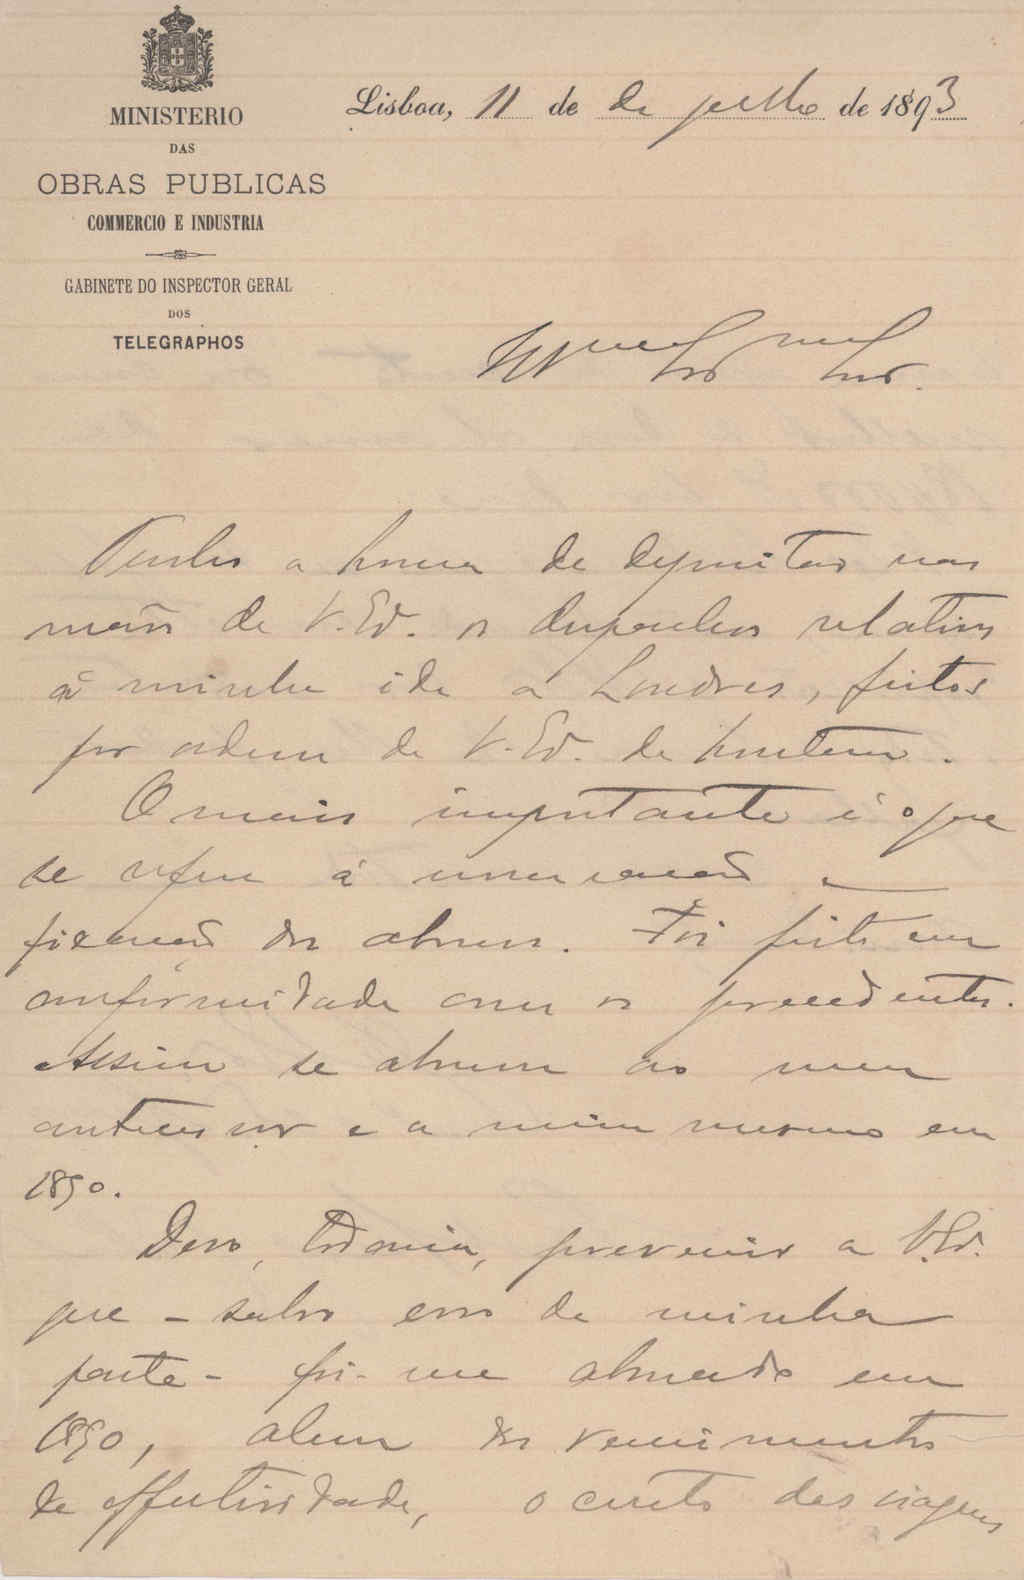 MINISTERIO
DAS
OBRAS PUBLICAS
COMMERCIO E INDUSTRIA
GABINETE DO INSPECTOR GERAL
DOS
TELEGRAPHOS
Lisboa, 11 de de julho de 1893
Snr.
Tenho a honra de depositar nas
mãos de V. Ex. os despachos relativos
á minha ida a Londres, feitos
por ordem de V. Ex. de hontem.
O mais importante é o que
se refere á nomeação e
fixação dos abonos. Foi feito em
conformidade com os precedentes.
Assim se abonou ao meu
antecessor e a mim mesmo em
1890.
Devo, todavia, prevenir a V. Ex.
que - salvo erro de minha
parte - foi-me abonado em
1890, alem dos vencimentos
de effectividade, o custo das viagens